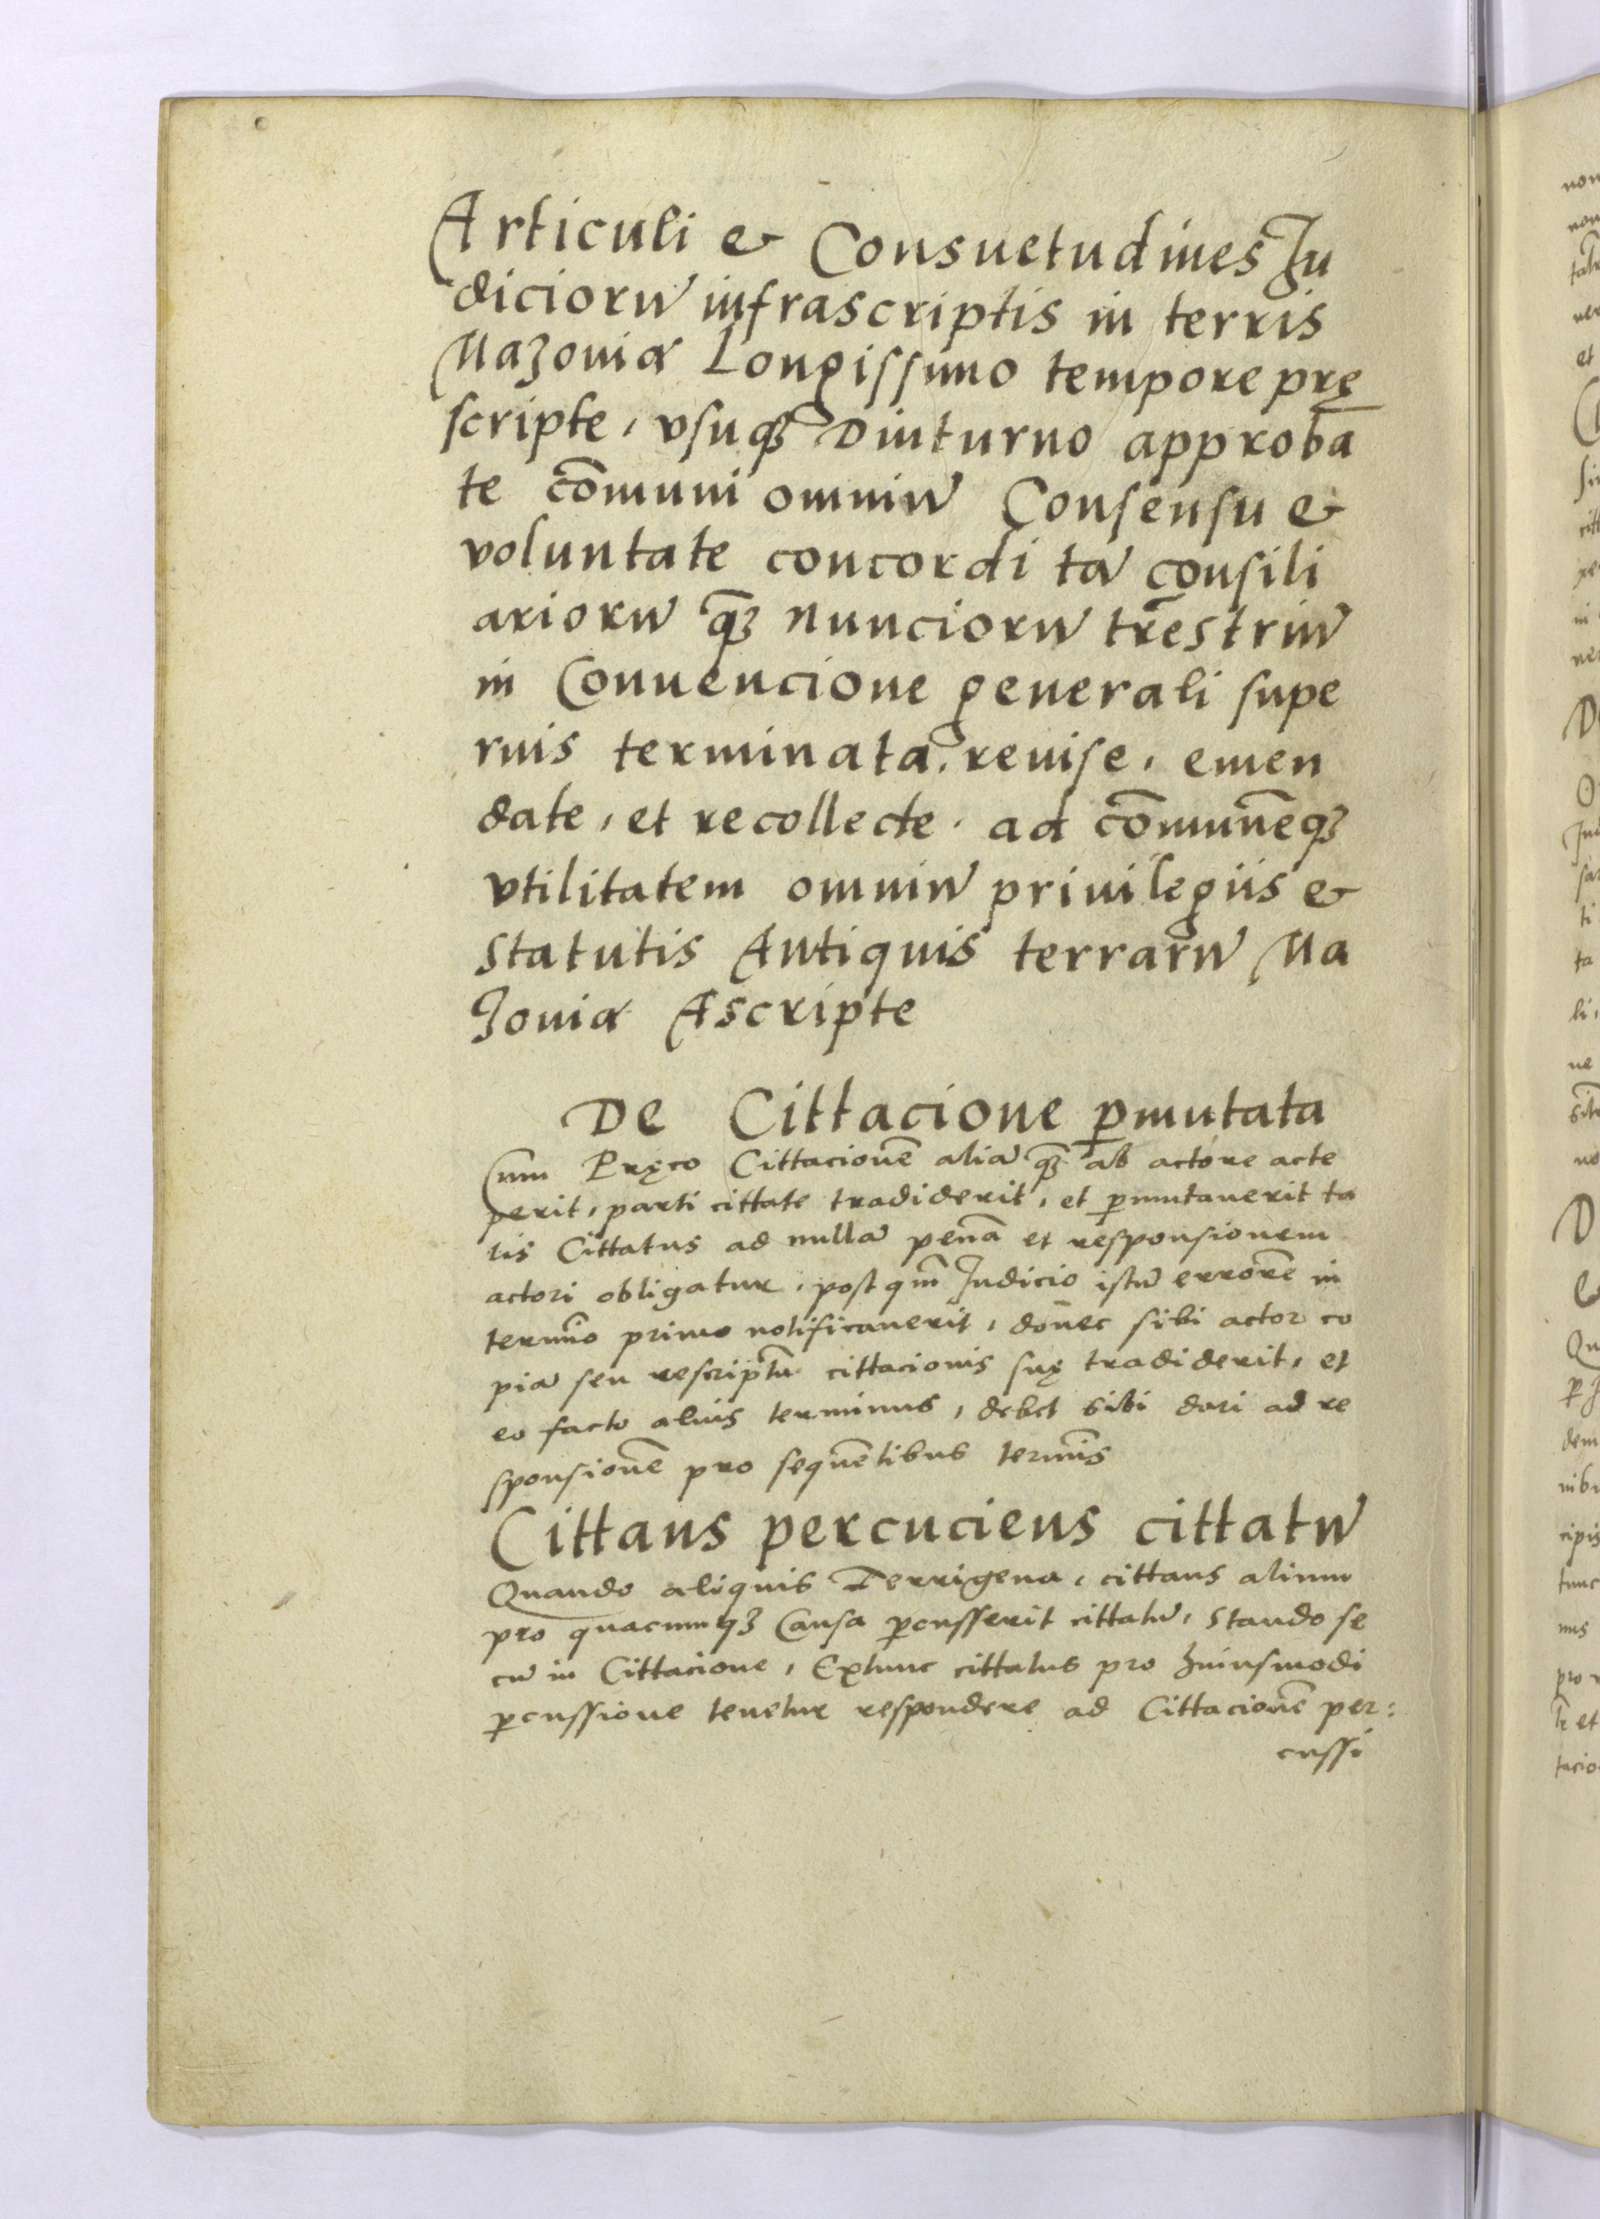 Articuli & Consuetudines Ju
diciorũ infrascriptis in terris
Mazoviæ Longissimo tempore prę
scripte, vsuqꝫ Diuturno approba̅
te co̅muni omniũ Consensu &
voluntate concordi tã consili
ariorũ qꝫ nunciorũ tr̃estriũ
in Convencione generali supe
rius terminata. reuise, emen
date, et recollecte. ad co̅mune̅qꝫ
vtilitatem omniũ priuilegiis &
statutis Antiquis terrarũ Ma
zoviæ Ascripte
De Cittacione ꝑmutata
Cum Pręco Cittacione̅ aliã qꝫ ab actore acce
perit, parti cittate tradiderit, et ꝑmutauerit ta
lis Cittatus ad nullã pena̅ et responsionem
actori obligatur, post qm̅ Judicio istũ errore̅ in
termi̅o primo notificauerit, donec sibi actor co
piã seu rescriptũ cittacionis suę tradiderit, et
eo facto alius terminus, debet sibi dari ad re
sponsione̅ pro seque̅tibus termi̅s
Cittans percuciens cittatũ
Quando aliquis Terrigena, cittans alium
pro quacumqꝫ Causa ꝑcusserit cittatũ, stando se
cũ in Cittacione, Extunc cittatus pro huiusmodi
ꝑcussione tenetur respondere ad Cittacione̅ per:
cussi